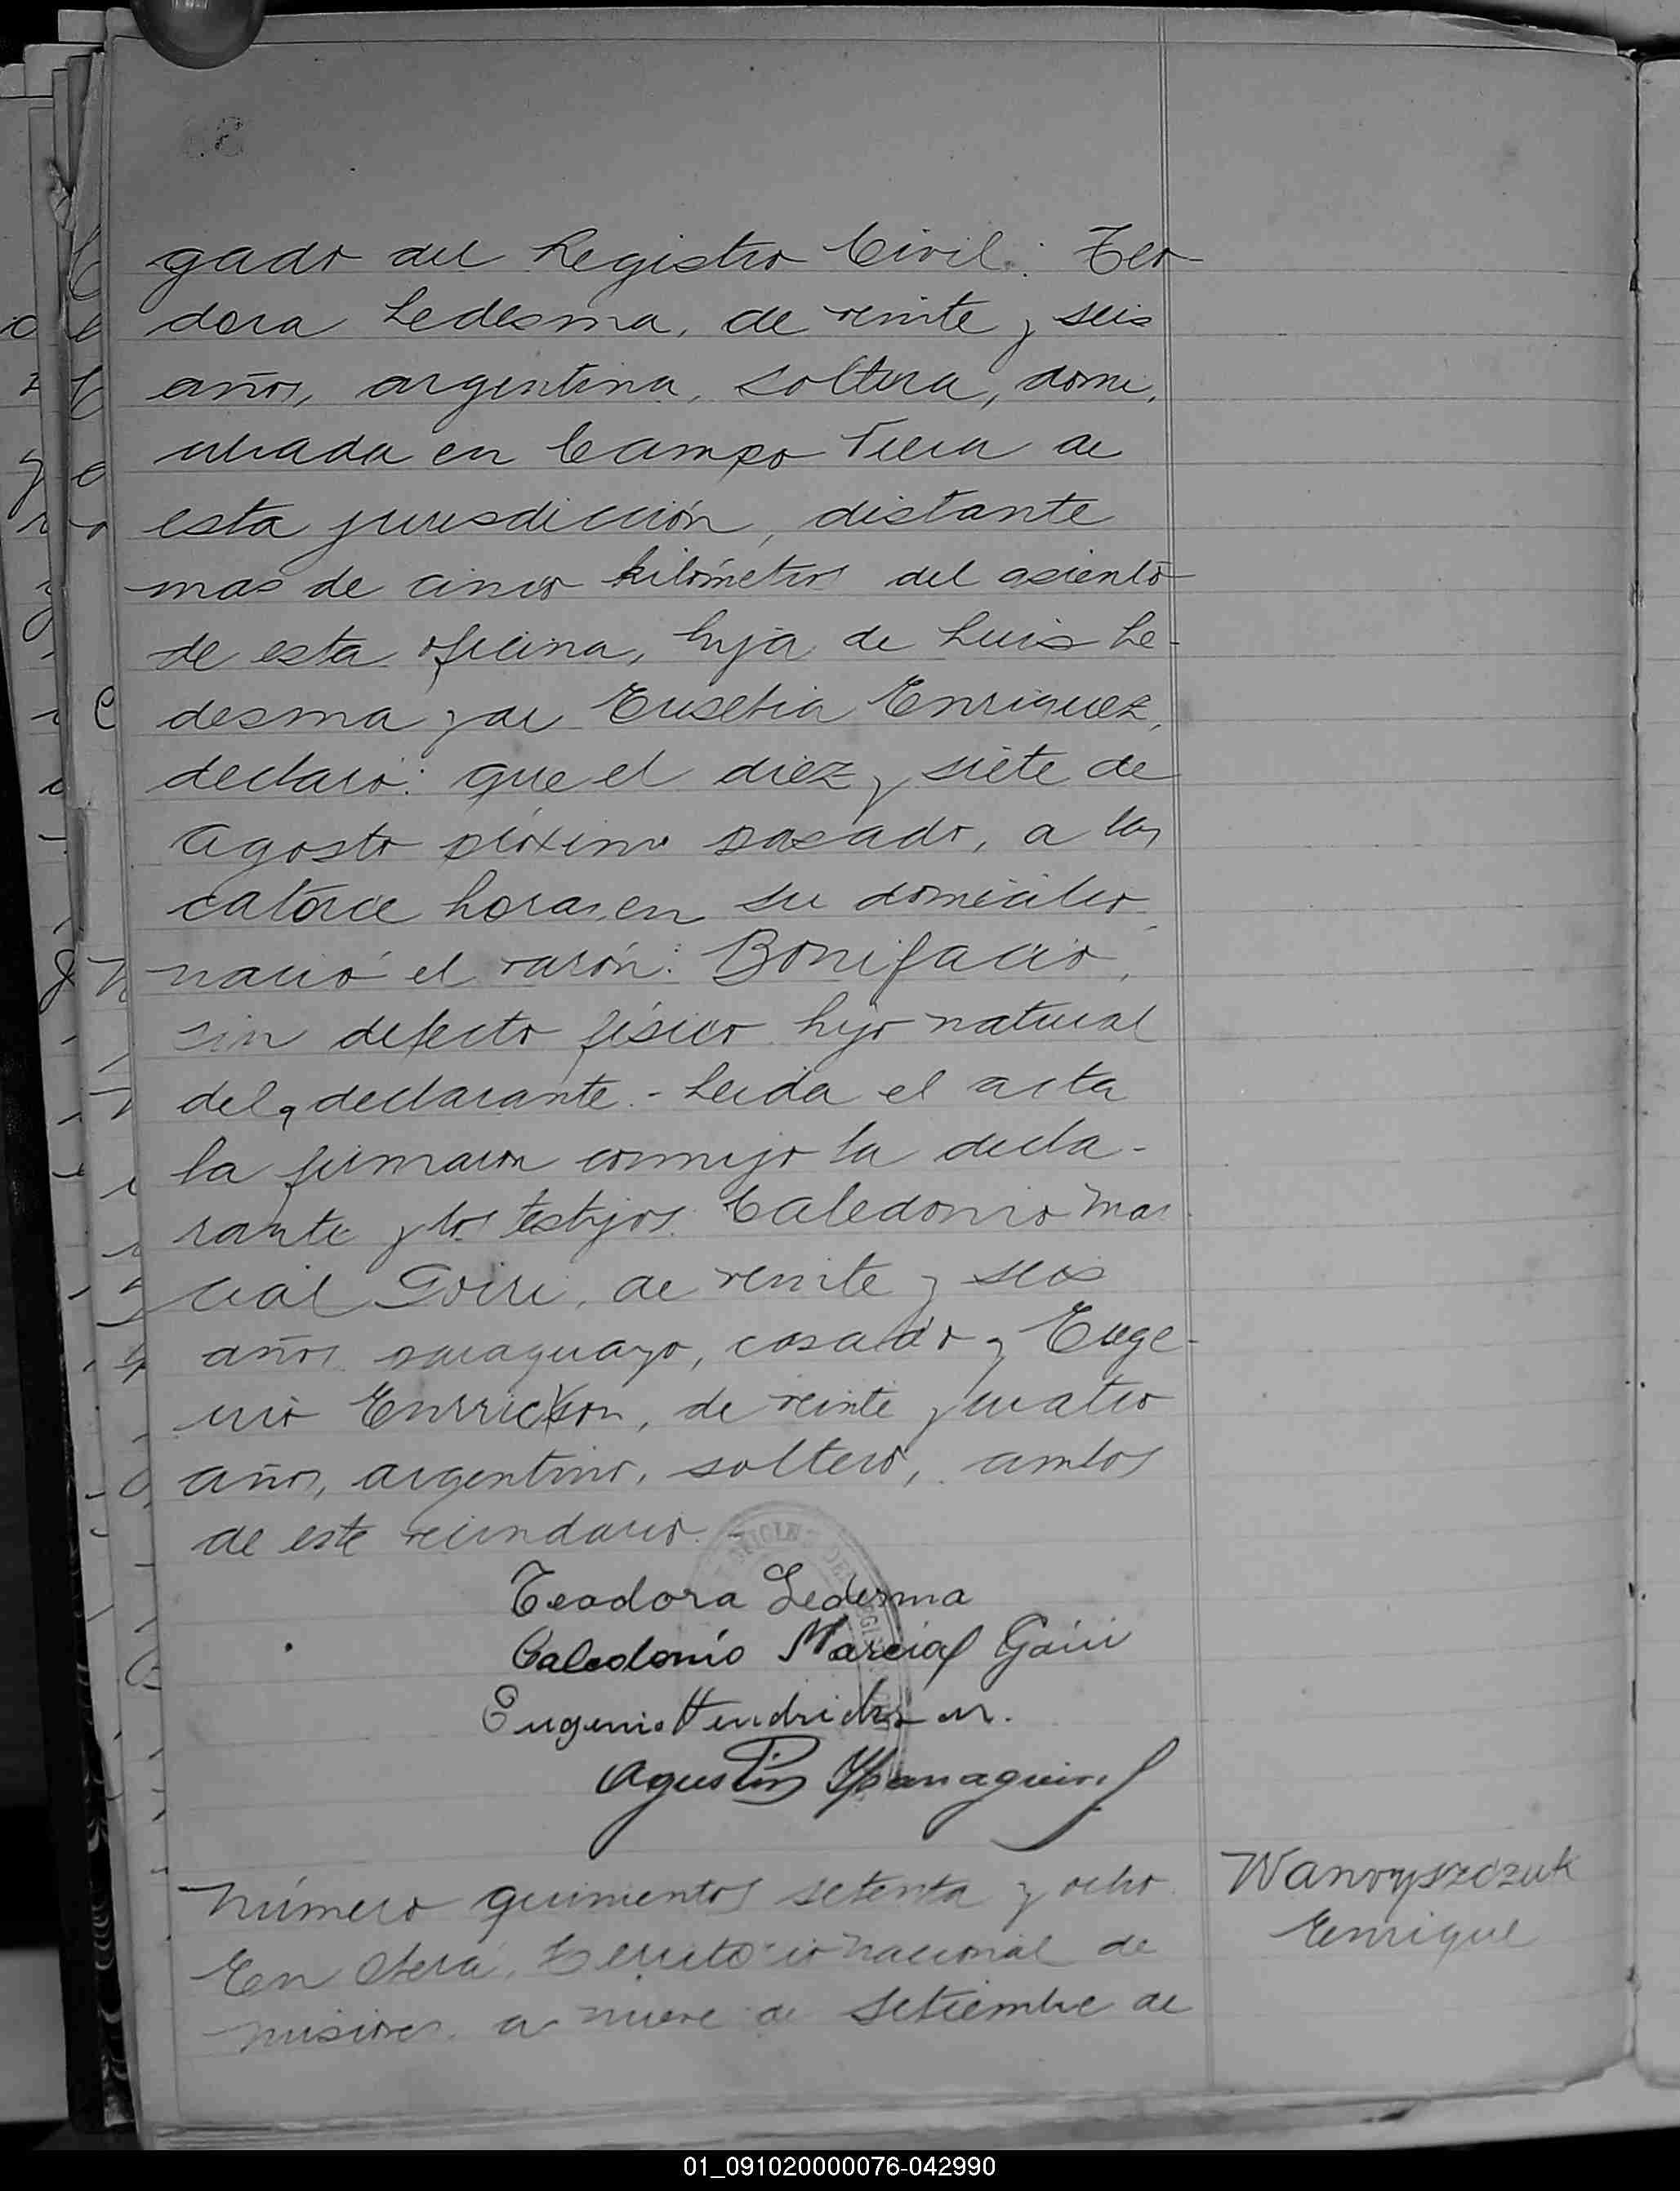 gado del Registro Civil: Teo
dora Ledesma, de veinte y seis
años, argentina, soltera, domi,
ciliada en Campo Viera de
esta jurisdicción, distante
mas de cinco kilómetros del asiento
de esta oficina, hija de Luis Le-
desma y de Eusebia Enriquez,
declaró: que el diez y siete de
Agosto próximo pasado, a las
catorce horas, en su domicilio
nació el varón: Bonifacio,
sin defecto físico hijo natural
del a declarante.- Leida el acta
la firmaron conmigo la decla-
rante y los testigos: Caledonio Mar
cial Goiri, de veinte y seis
años paraguayo, casado y Euge-
nio Enrrickson, de veinte y cuatro
años, argentino, soltero, ambos
de este vecindario.-
Teodora Ledesma
Caledonio Marcial Goiri
Eugenio Hendrickson.
Agustin
Número quinientos setenta y ocho
En Oberá, Territorio Nacional de
Misiones a nueve de Setiembre de
Wanryszczuk
Enrique
01_091020000076-042990